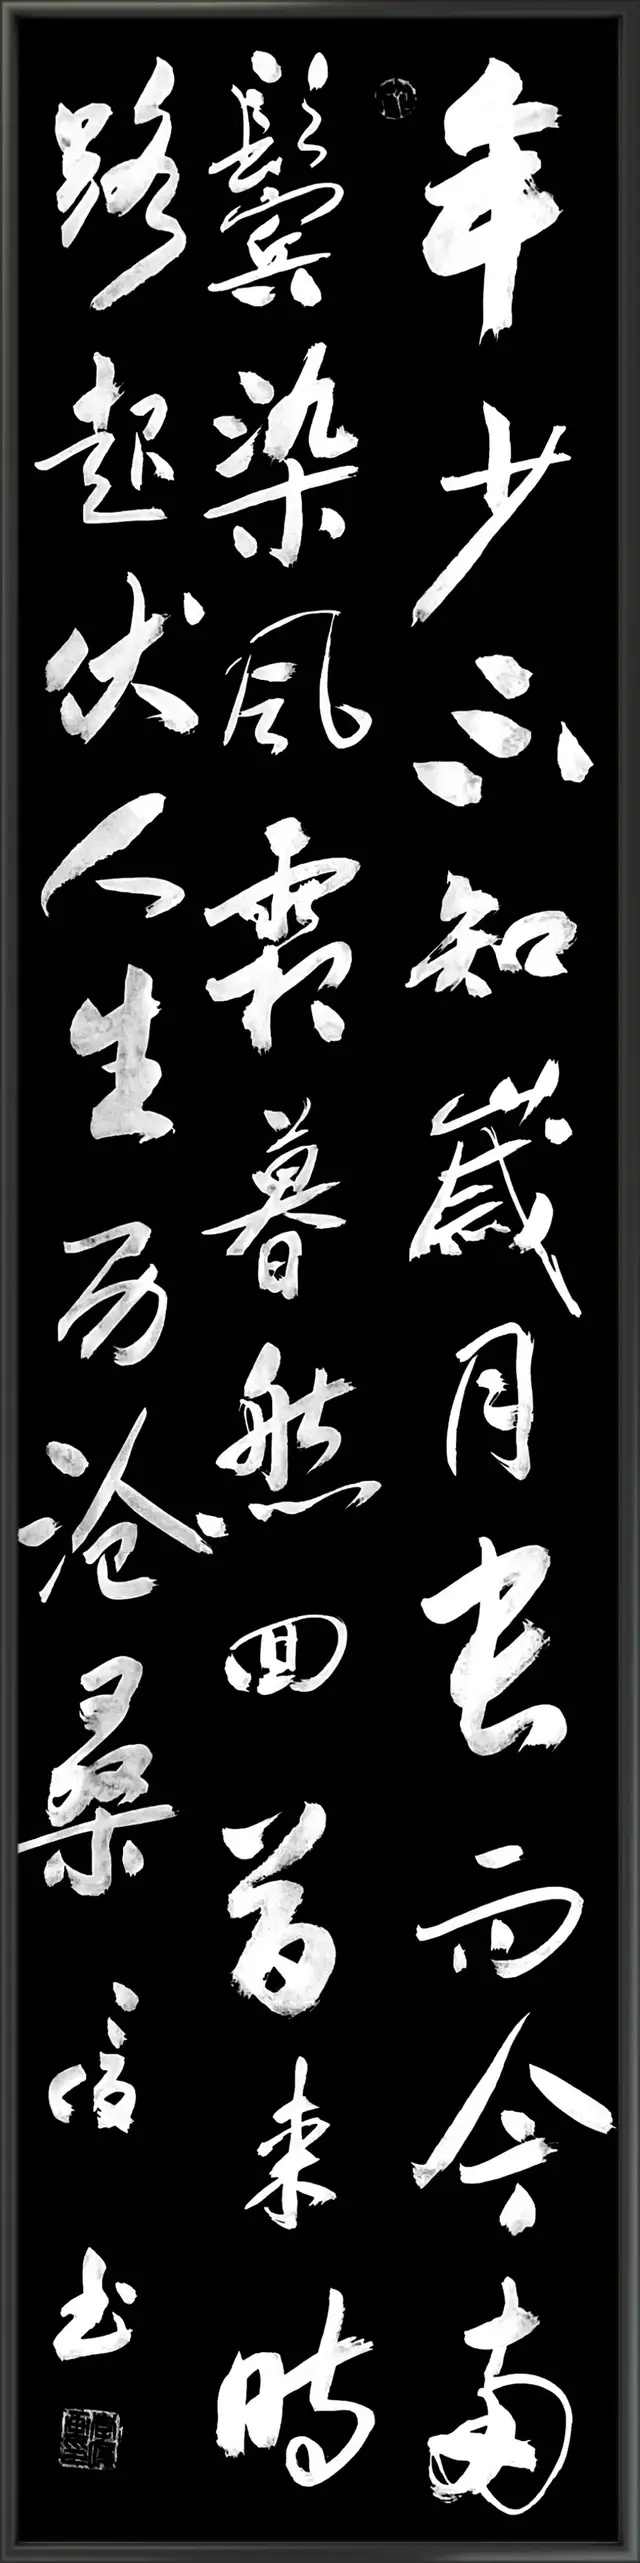 年少不知歲月长而今两
鬓染风霜暮然回首来時
路起伏人生历沧桑 信书